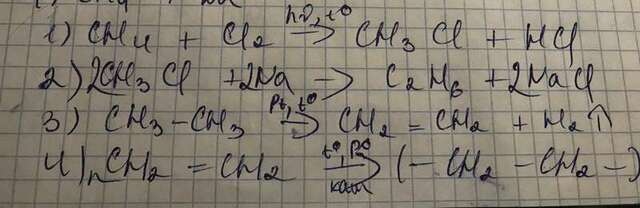 1) CH4 + Cl2 hν, t° → CH3Cl + HCl
2) 2CH3Cl + 2Na → C2H6 + 2NaCl
3) CH3 – CH3 Pt, t° → CH2 = CH2 + H2↑
4) nCH2 = CH2 t°, P°, кат → (– CH2 – CH2 –)